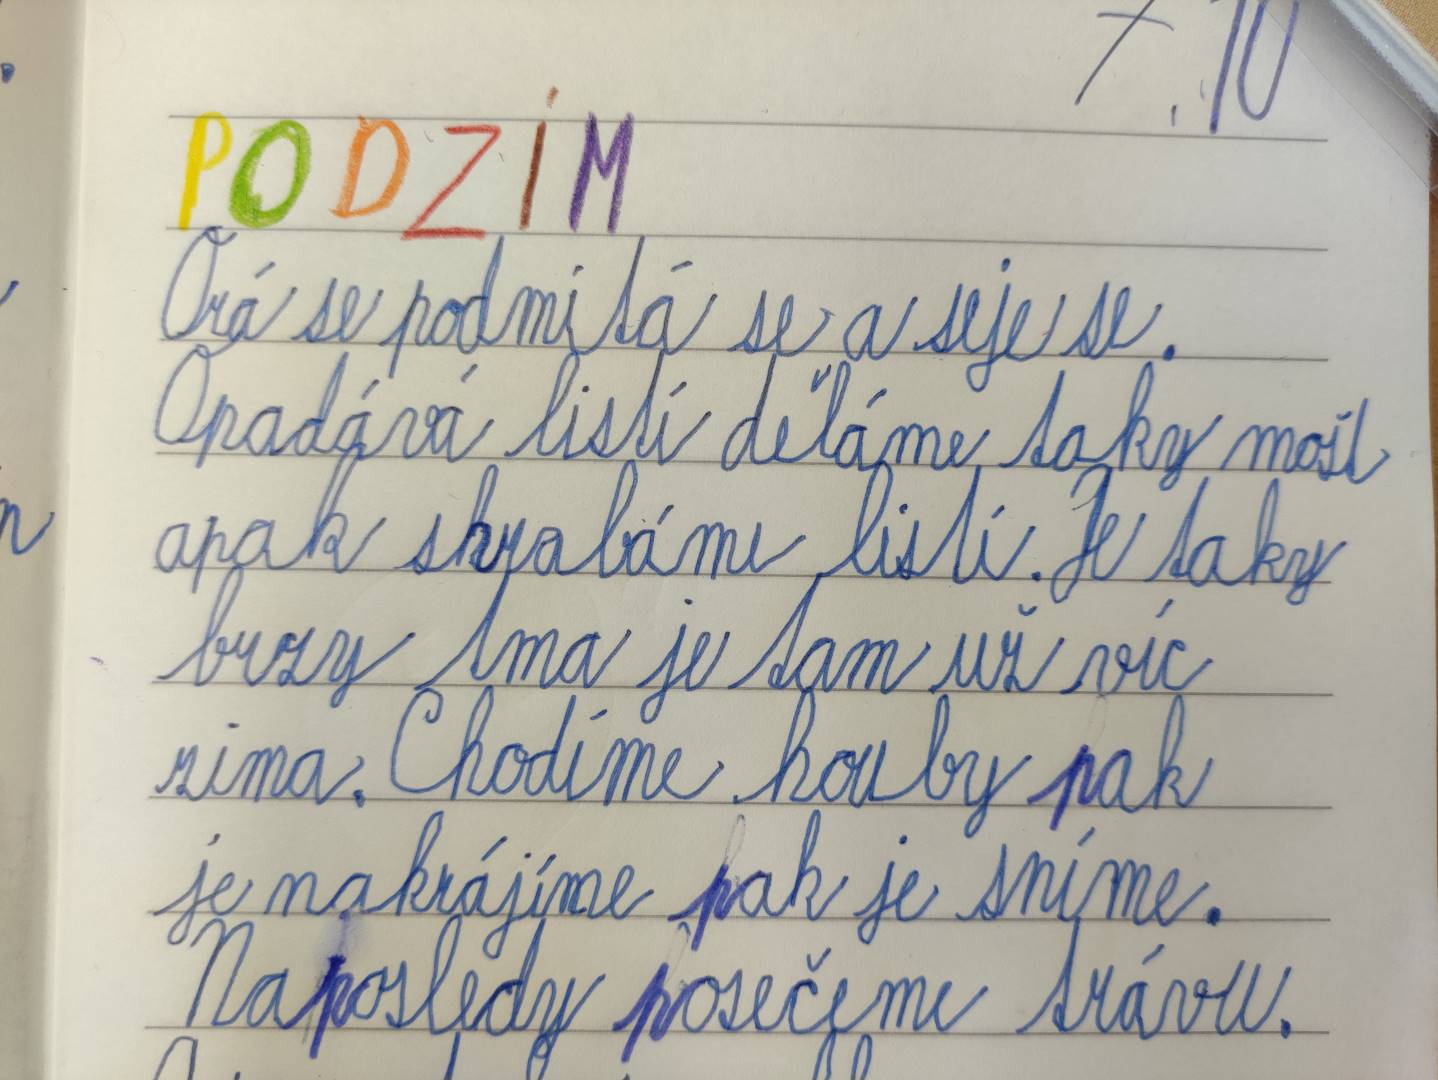 7.10
PODZÍM
Orá se podmítá se a seje se.
Opadává listí děláme taky mošt
apak shrabáme listí. Je taky
brzy tma je tam už víc
zima. Chodíme houby pak
je nakrájíme pak je sníme.
Naposledy posečeme trávu.